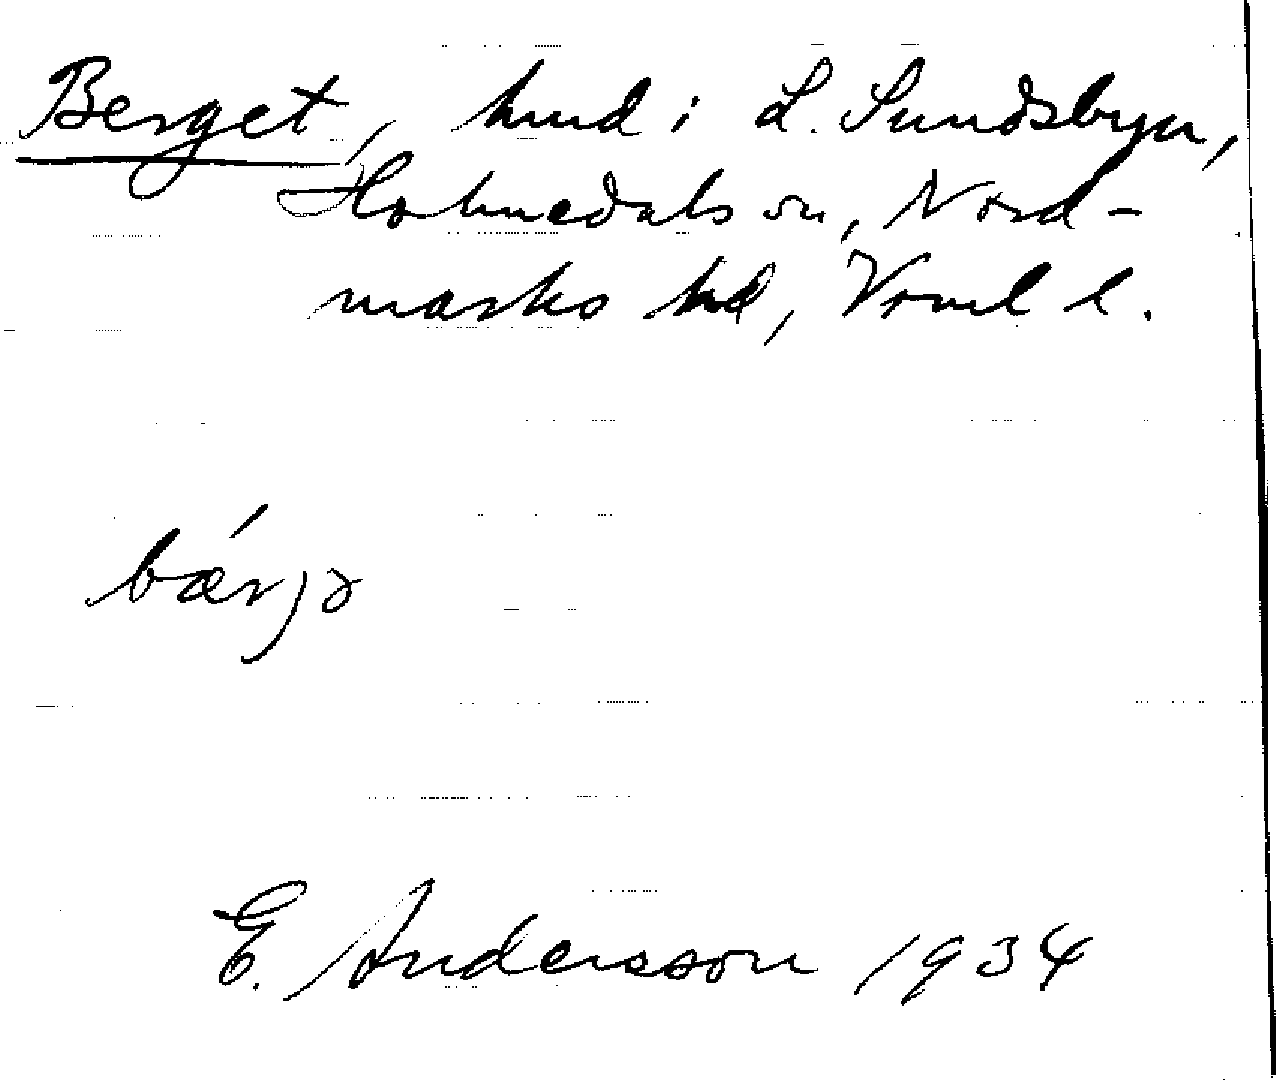 Berget, hmd i L. Sundsbyn,
Holmedals sn, Nord-
marks hd, Vrml l.
bǽrjə
E. Andersson 1934